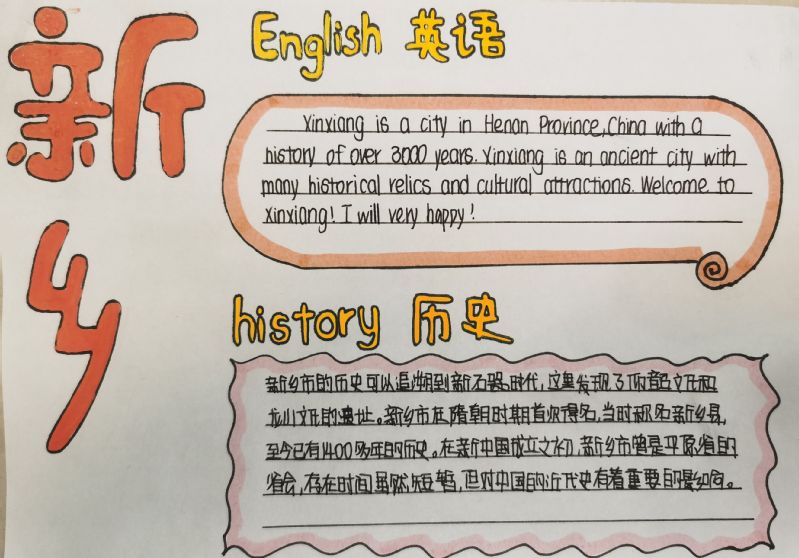 新乡
English 英语
Xinxiang is a city in Henan Province, China with a
history of over 3000 years. Xinxiang is an ancient city with
many historical relics and cultural attractions. Welcome to
Xinxiang! I will very happy!
history 历史
新乡市的历史可以追溯到新石器时代,这里发现了仰韶文化和
龙山文化的遗址。新乡市在隋朝时期首次得名,当时称名新乡县,
至今已有1400多年的历史。在新中国成立之初,新乡市曾是平原省的
省会,存在时间虽然短暂,但对中国的近代史有着重要的影响。